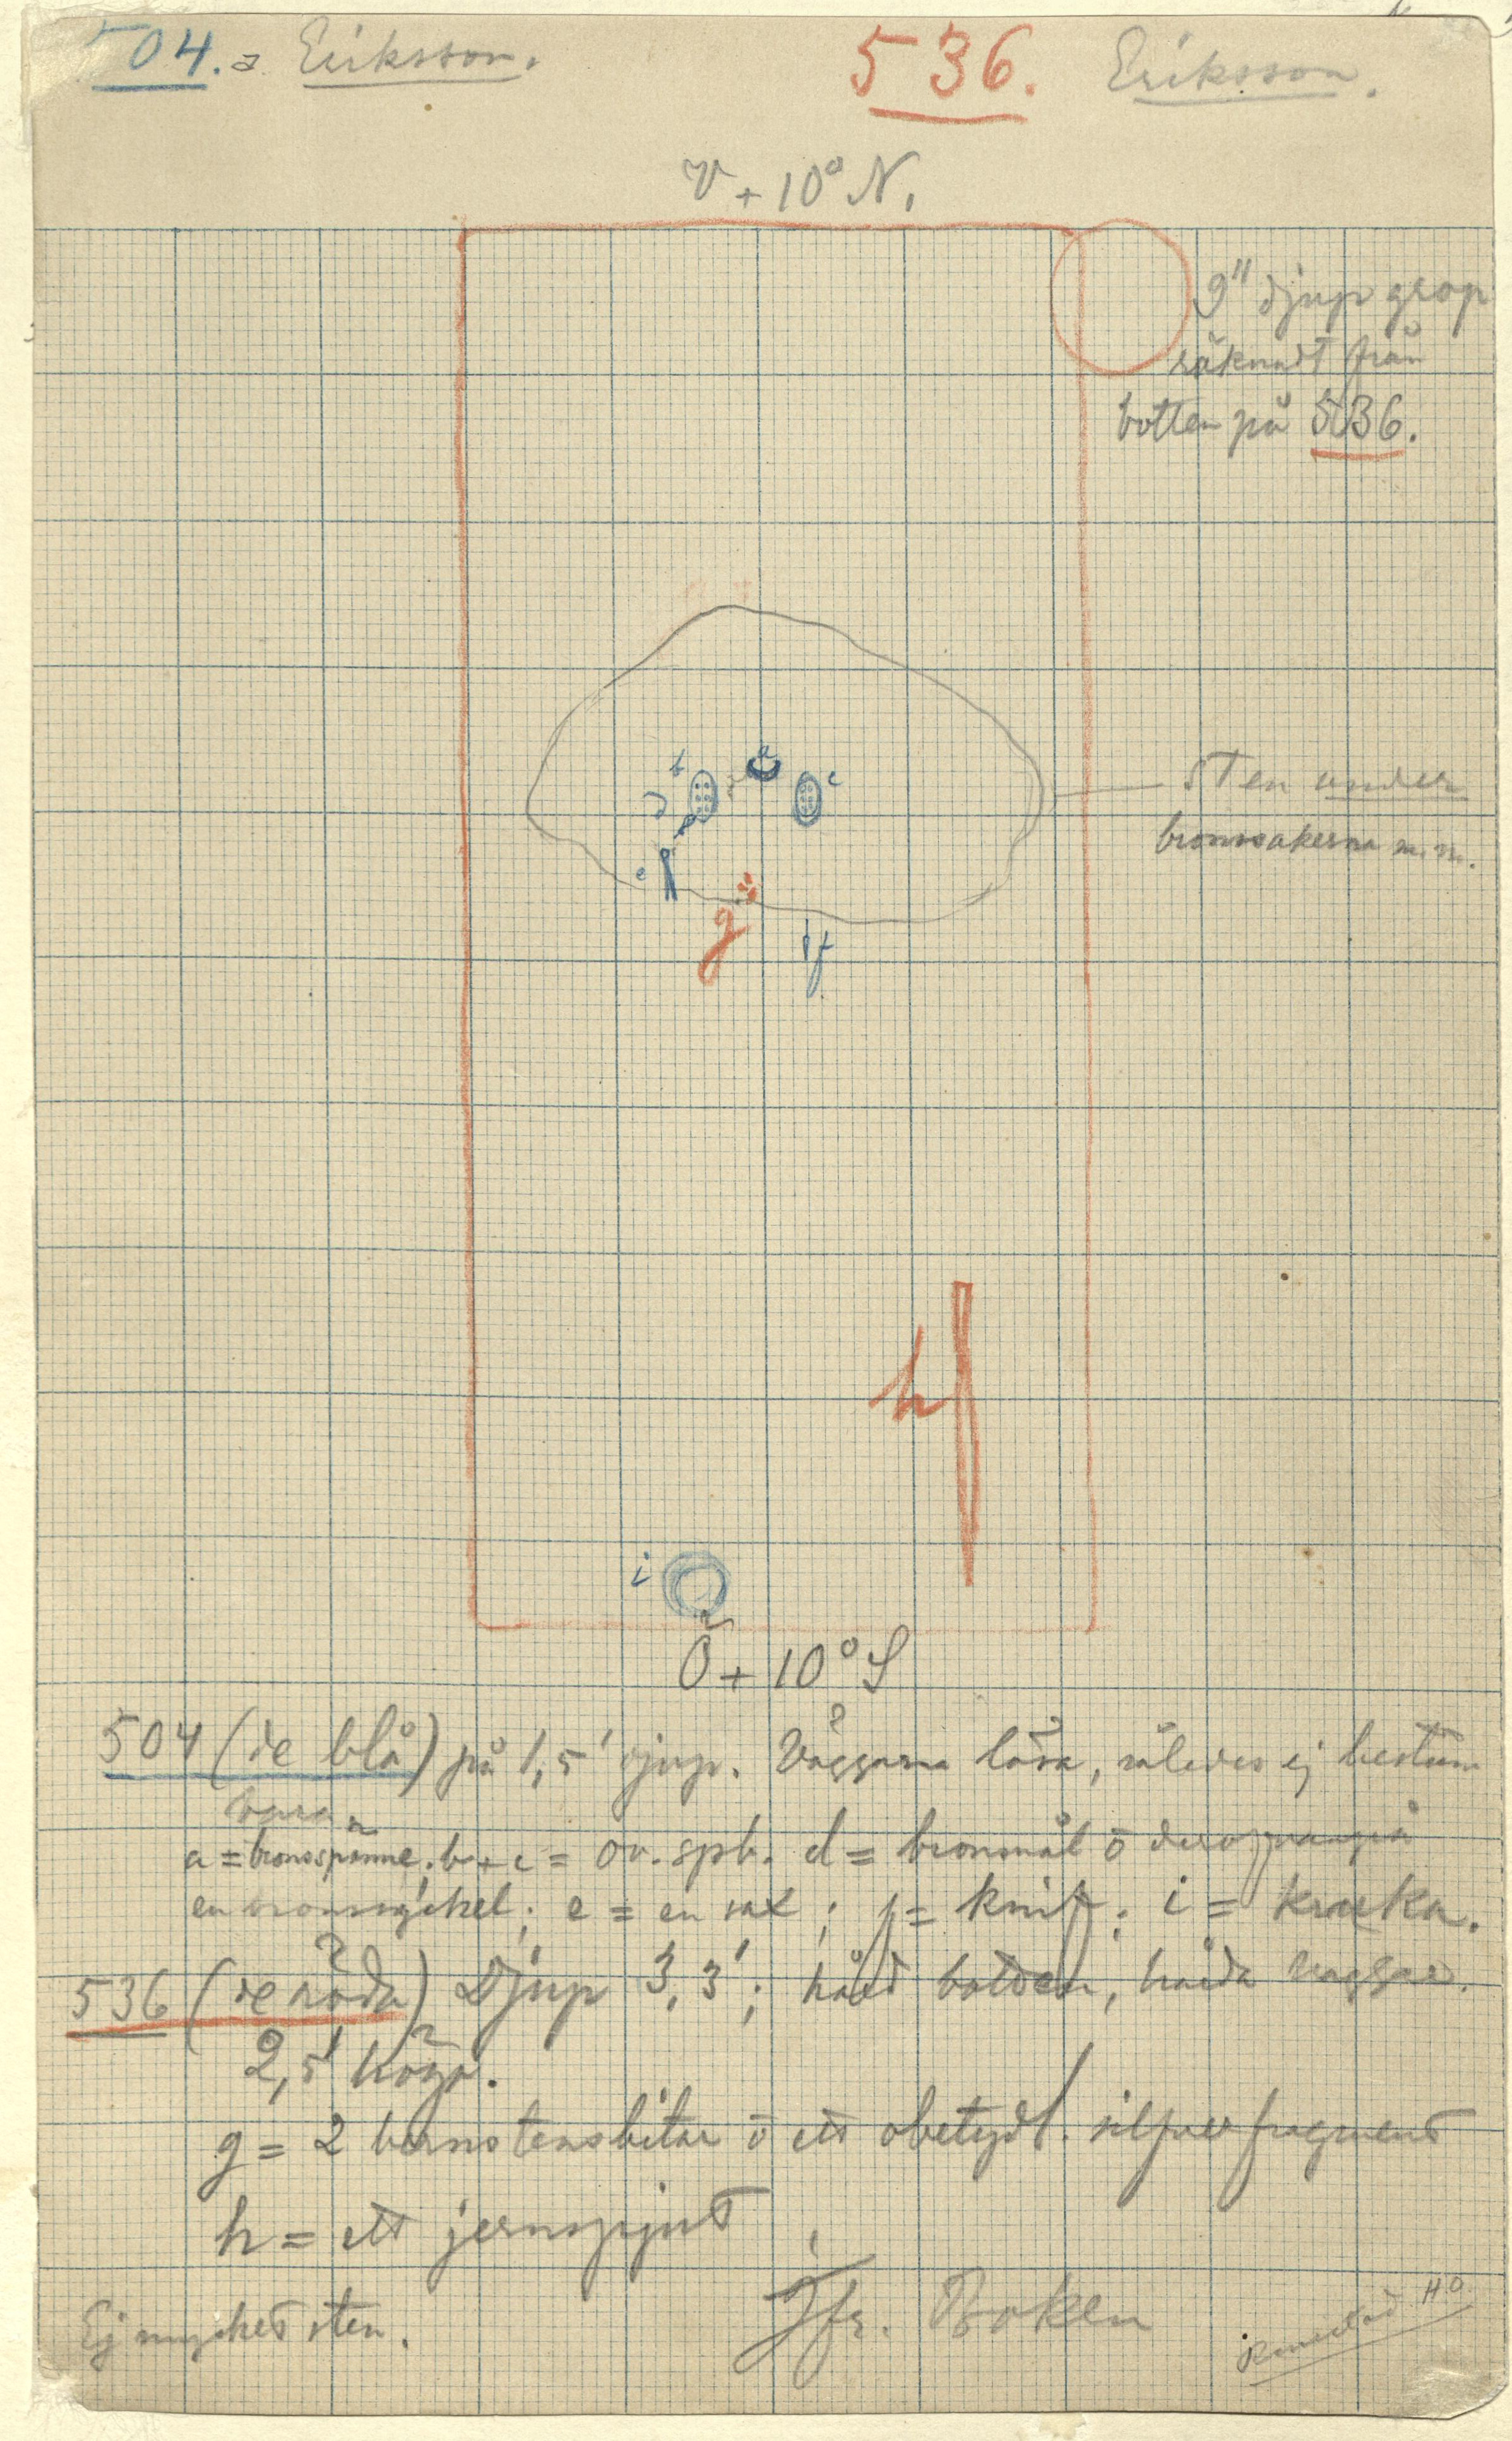 504. a Eriksson.
536. Eriksson.
V + 10° N.
9" djup grop
räknadt från
botten på 536.
Sten under
bronssakerna m.m.
b
a
c
d
e
g
f
h
i
Ö + 10° S
504 (de blå) på 1,5' djup. Väggarna lösa, således ej bestäm
a = bronsspänne; b + c = ov. spb. d = bronsnål o
en bronsnyckel; e = en sax; f = knif; i = kruka.
536 (de röda) Djup 3,3'; hård botten, hårda väggar.
2,5' höga.
g = 2 bernstensbitar o ett obetydl. silfverfragment
h = ett jernspjut
Ej mycket sten.
Jfr. Boken
HS.